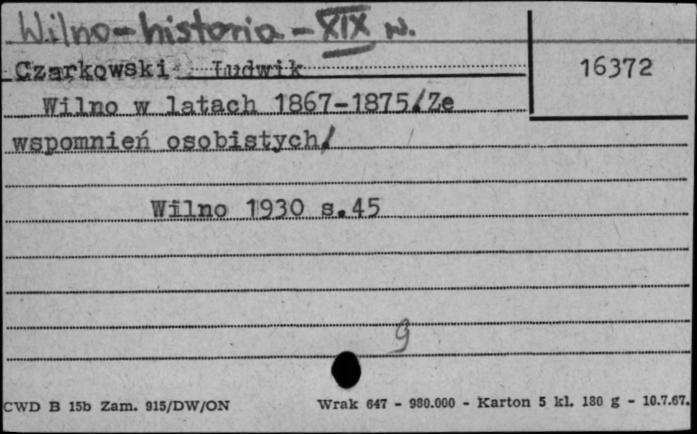 Wilno - historia - XIX w.
Czarkowski Ludwik
16372
Wilno w latach 1867-1875/Ze
wspomnień osobistych/
Wilno 1930 s.45
9
CWD B 15b Zam. 915/DW/ON
Wrak 647 - 980.000 - Karton 5 kl. 180 g - 10.7.67.